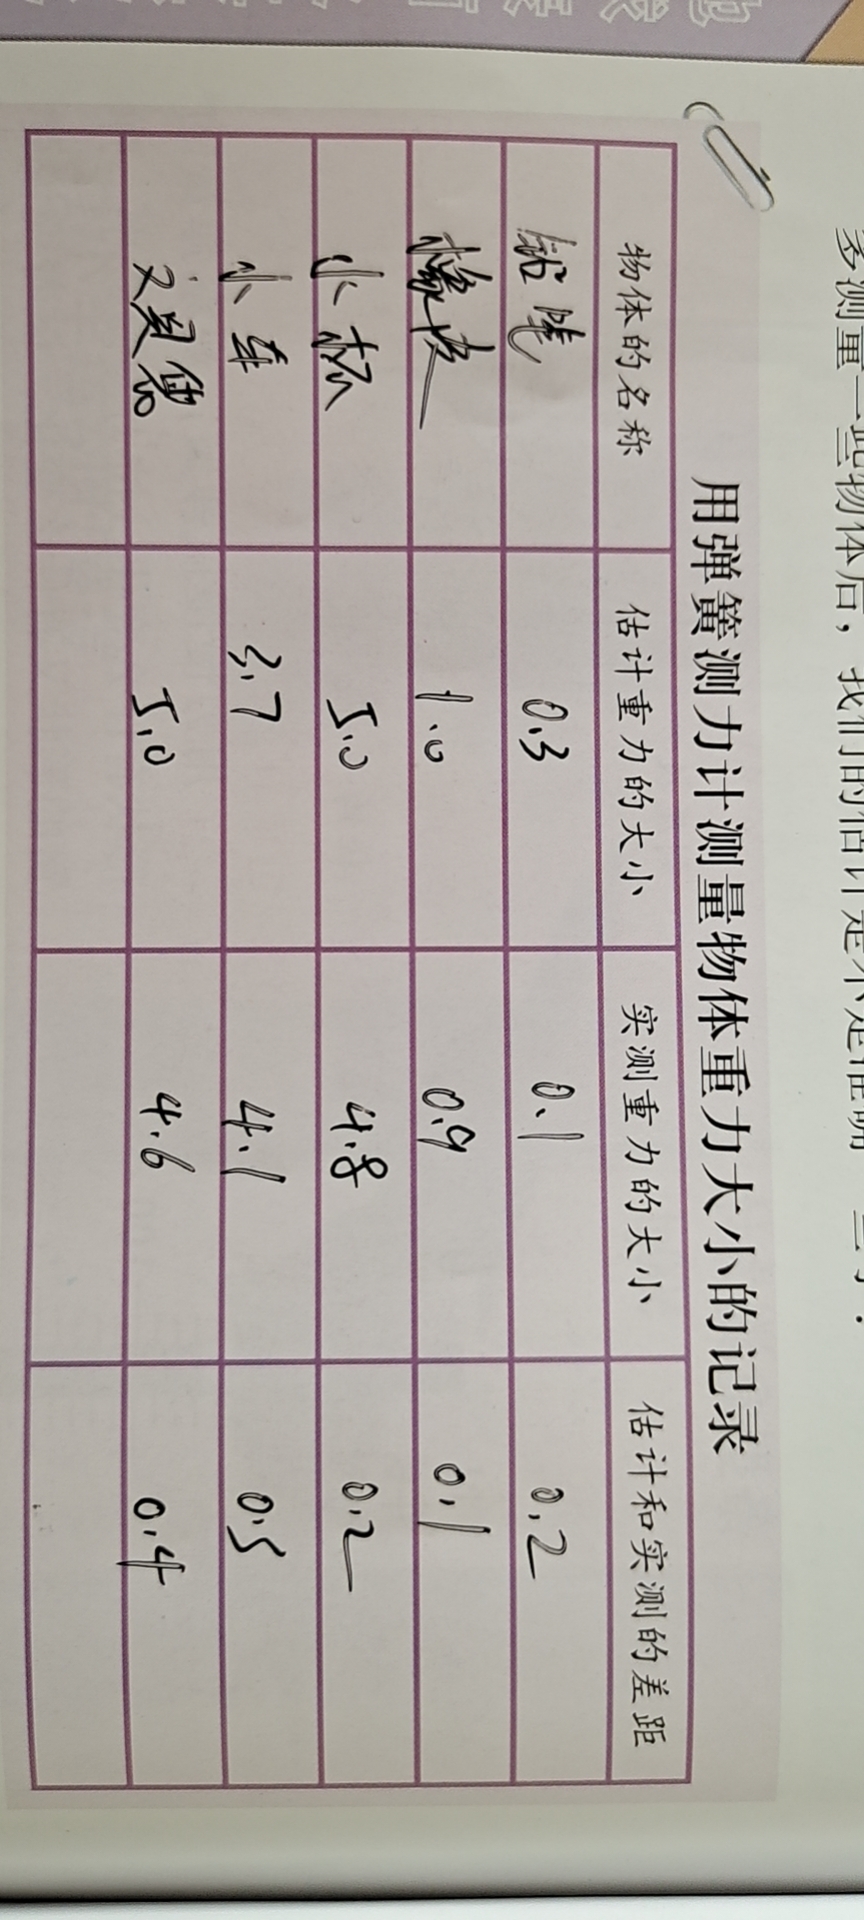 多测量一些物体后，我们的估计是不是准确一些了？
用弹簧测力计测量物体重力大小的记录
物体的名称 估计重力的大小 实测重力的大小 估计和实测的差距
铅笔 0.3 0.1 0.2
橡皮 1.0 0.9 0.1
小杯 5.0 4.8 0.2
小车 3.7 4.1 0.5
文具袋 5.0 4.6 0.4